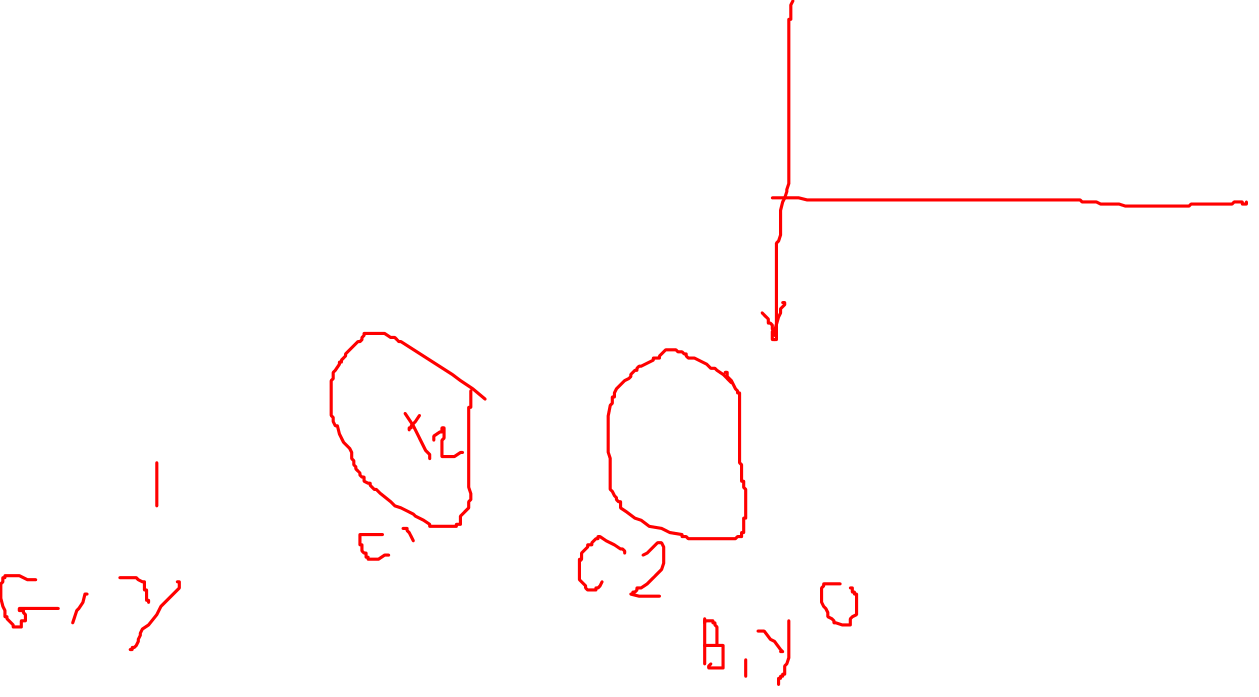 1
x2
C1
C2
G, y
B, y
0